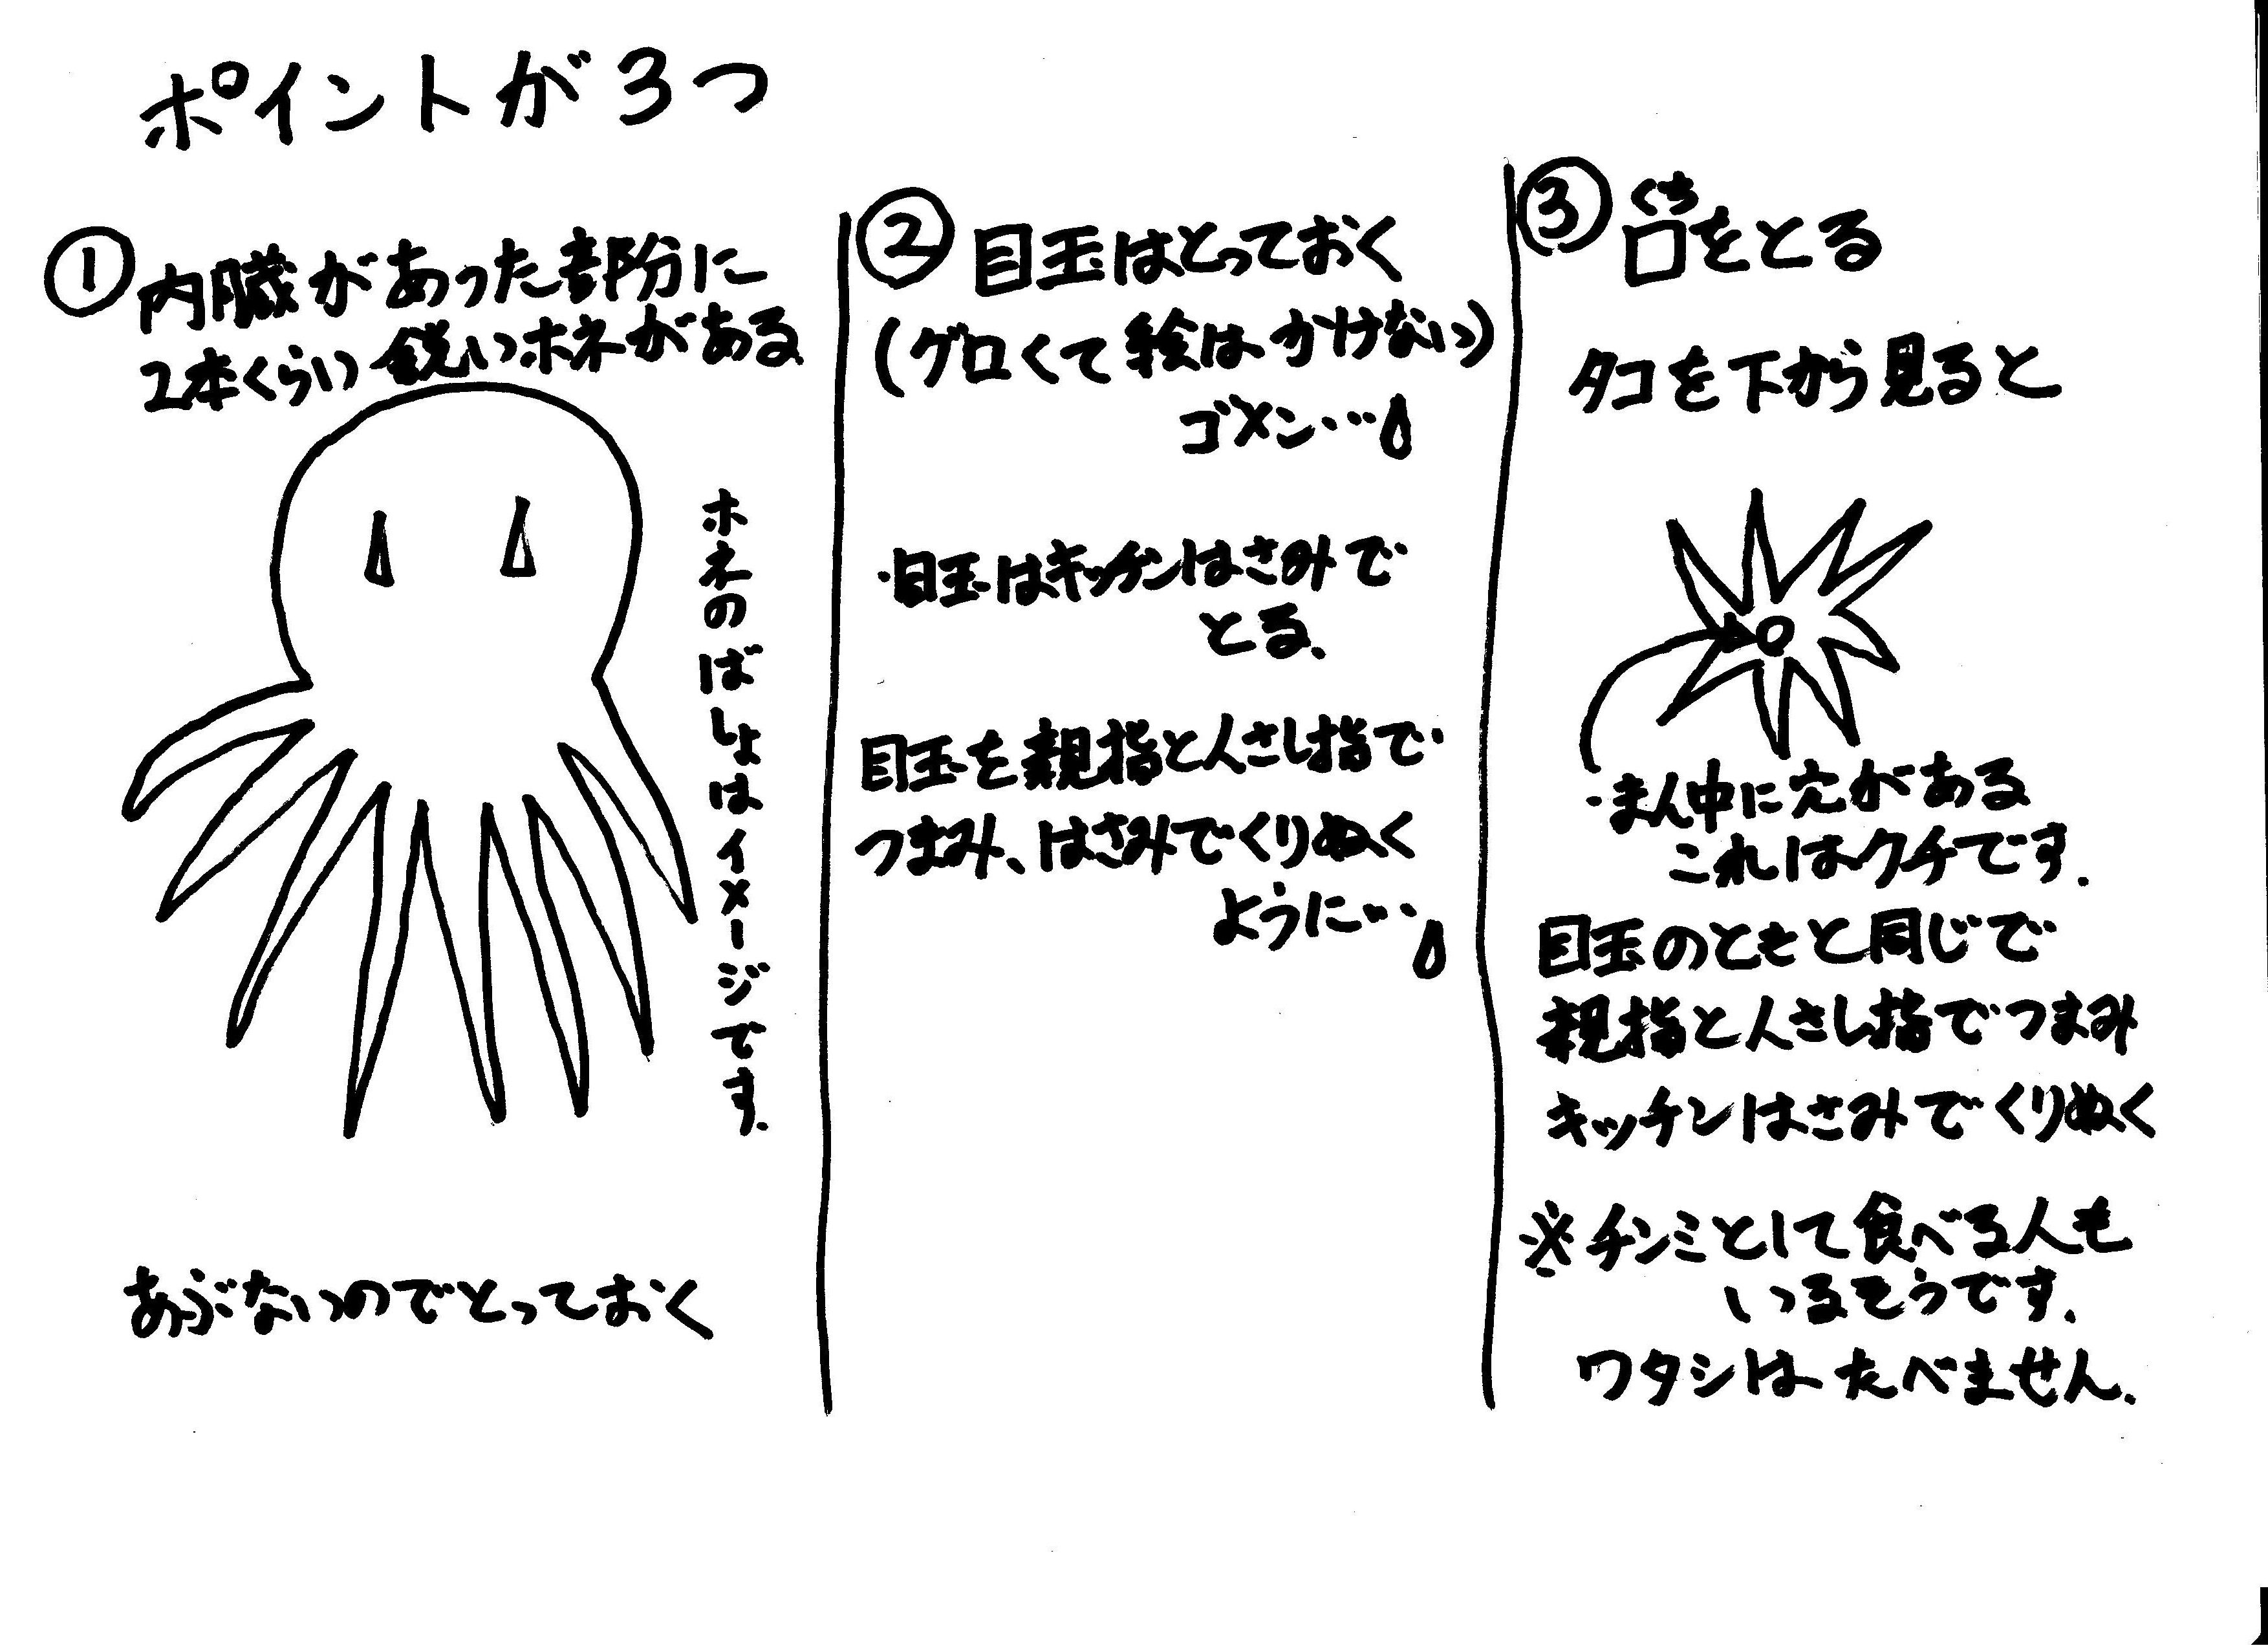 ポイントが3つ
① 内臓があった部分に
2本くらい鋭いホネがある
ホネのばしょはイメージです.
あぶないのでとっておく
② 目玉はとっておく
(グロくて絵はかけない)
ゴメン…
・目玉はキッチンはさみで
とる.
目玉を親指と人さし指で
つまみ、はさみでくりぬく
ように…
③ 口をとる
くち
タコを下から見ると
・まん中に穴がある
これはクチです.
目玉のときと同じで
親指と人さし指でつまみ
キッチンはさみでくりぬく
※チンミとして食べる人も
いるそうです.
ワタシはたべません.